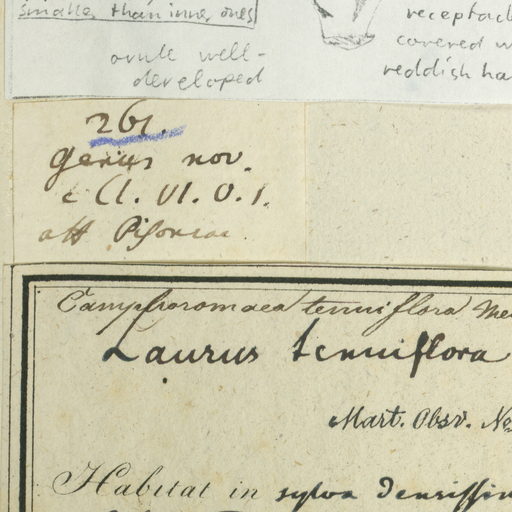 smaller than inner ones
ovule well-
developed
receptacl
covered w
reddish ha
261.
genus nov.
e Cl. VI. O. 1.
aff Pisoniae
Camphoromoea tenuiflora
Laurus tenuiflora
Mart. Obsv. No
Habitat in sylva densissim